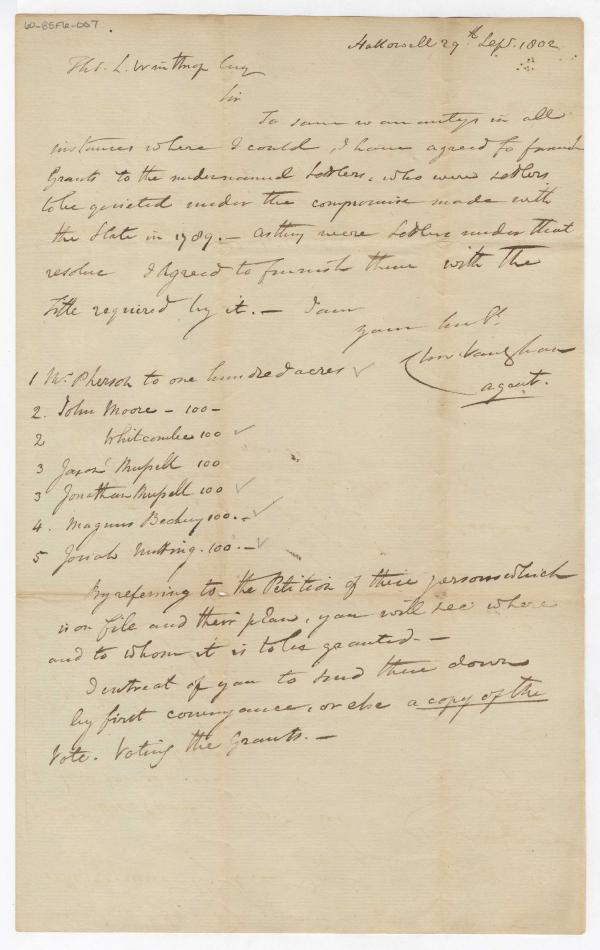 60-85F6-007
Hallowell 29th Sepr. 1802
Thos. L. Winthrop Esq
Sir
To save in all
instances where I could, I have agreed to furnish
Grants to the undernamed Settlers, who were Settlers
to be quieted under the compromise made with
the State in 1789. — As they were Settlers under that
resolve I Agreed to furnish them with the
Title required by it. — I am
your
Vaughan
agent.
1 Mc. Pherson to one hundred acres
2. John Moore — 100 —
2 Whitcombe 100
3 Jason Russell 100
3 Jonathan Russell 100
4. Magnus 100. —
5 Josiah Nutting. 100. —
By referring to the Petition of these persons which
is on file and their plan, you will see where
and to whom it is to be granted. —
I intreat of you to send these down
by first conveyance, or else a copy of the
Vote. Voting the Grants. —